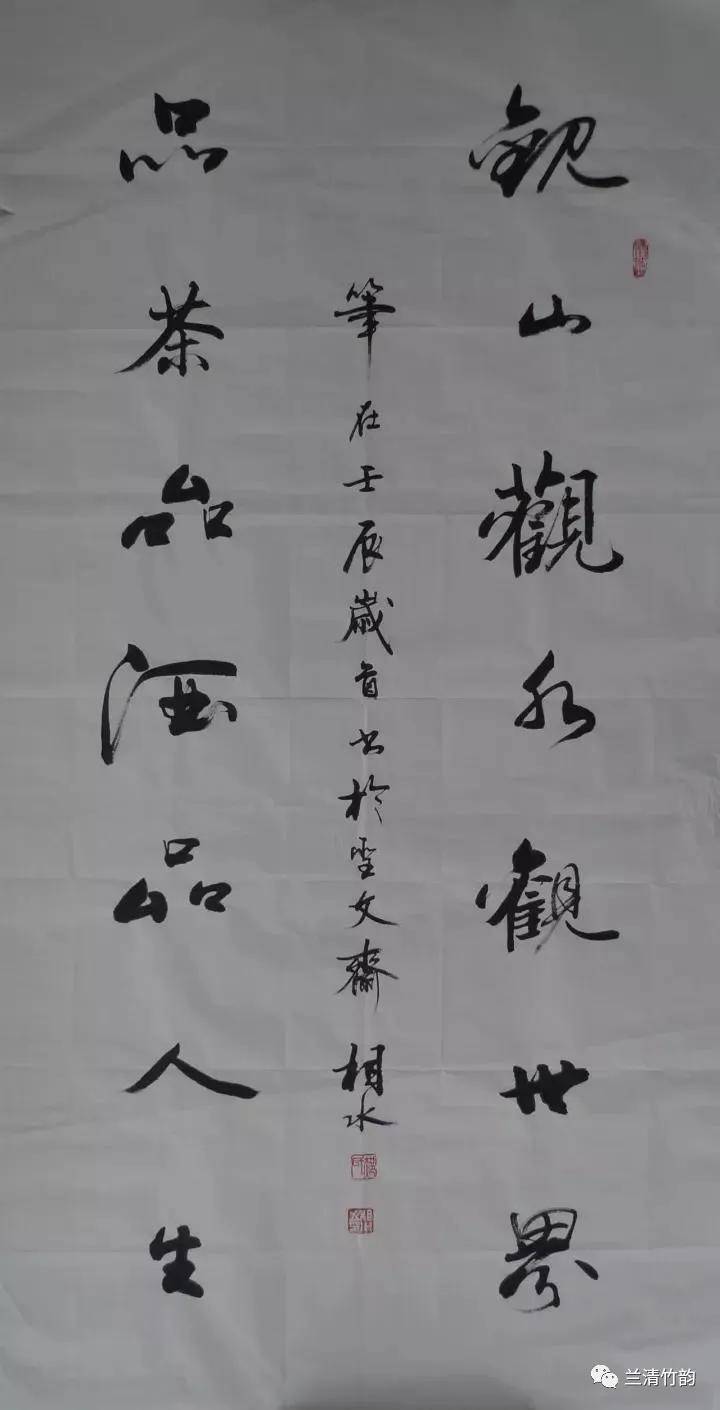 觀山觀水觀世界
筆在壬辰歲首书於聖文齋 相水
品茶品酒品人生
兰清竹韵